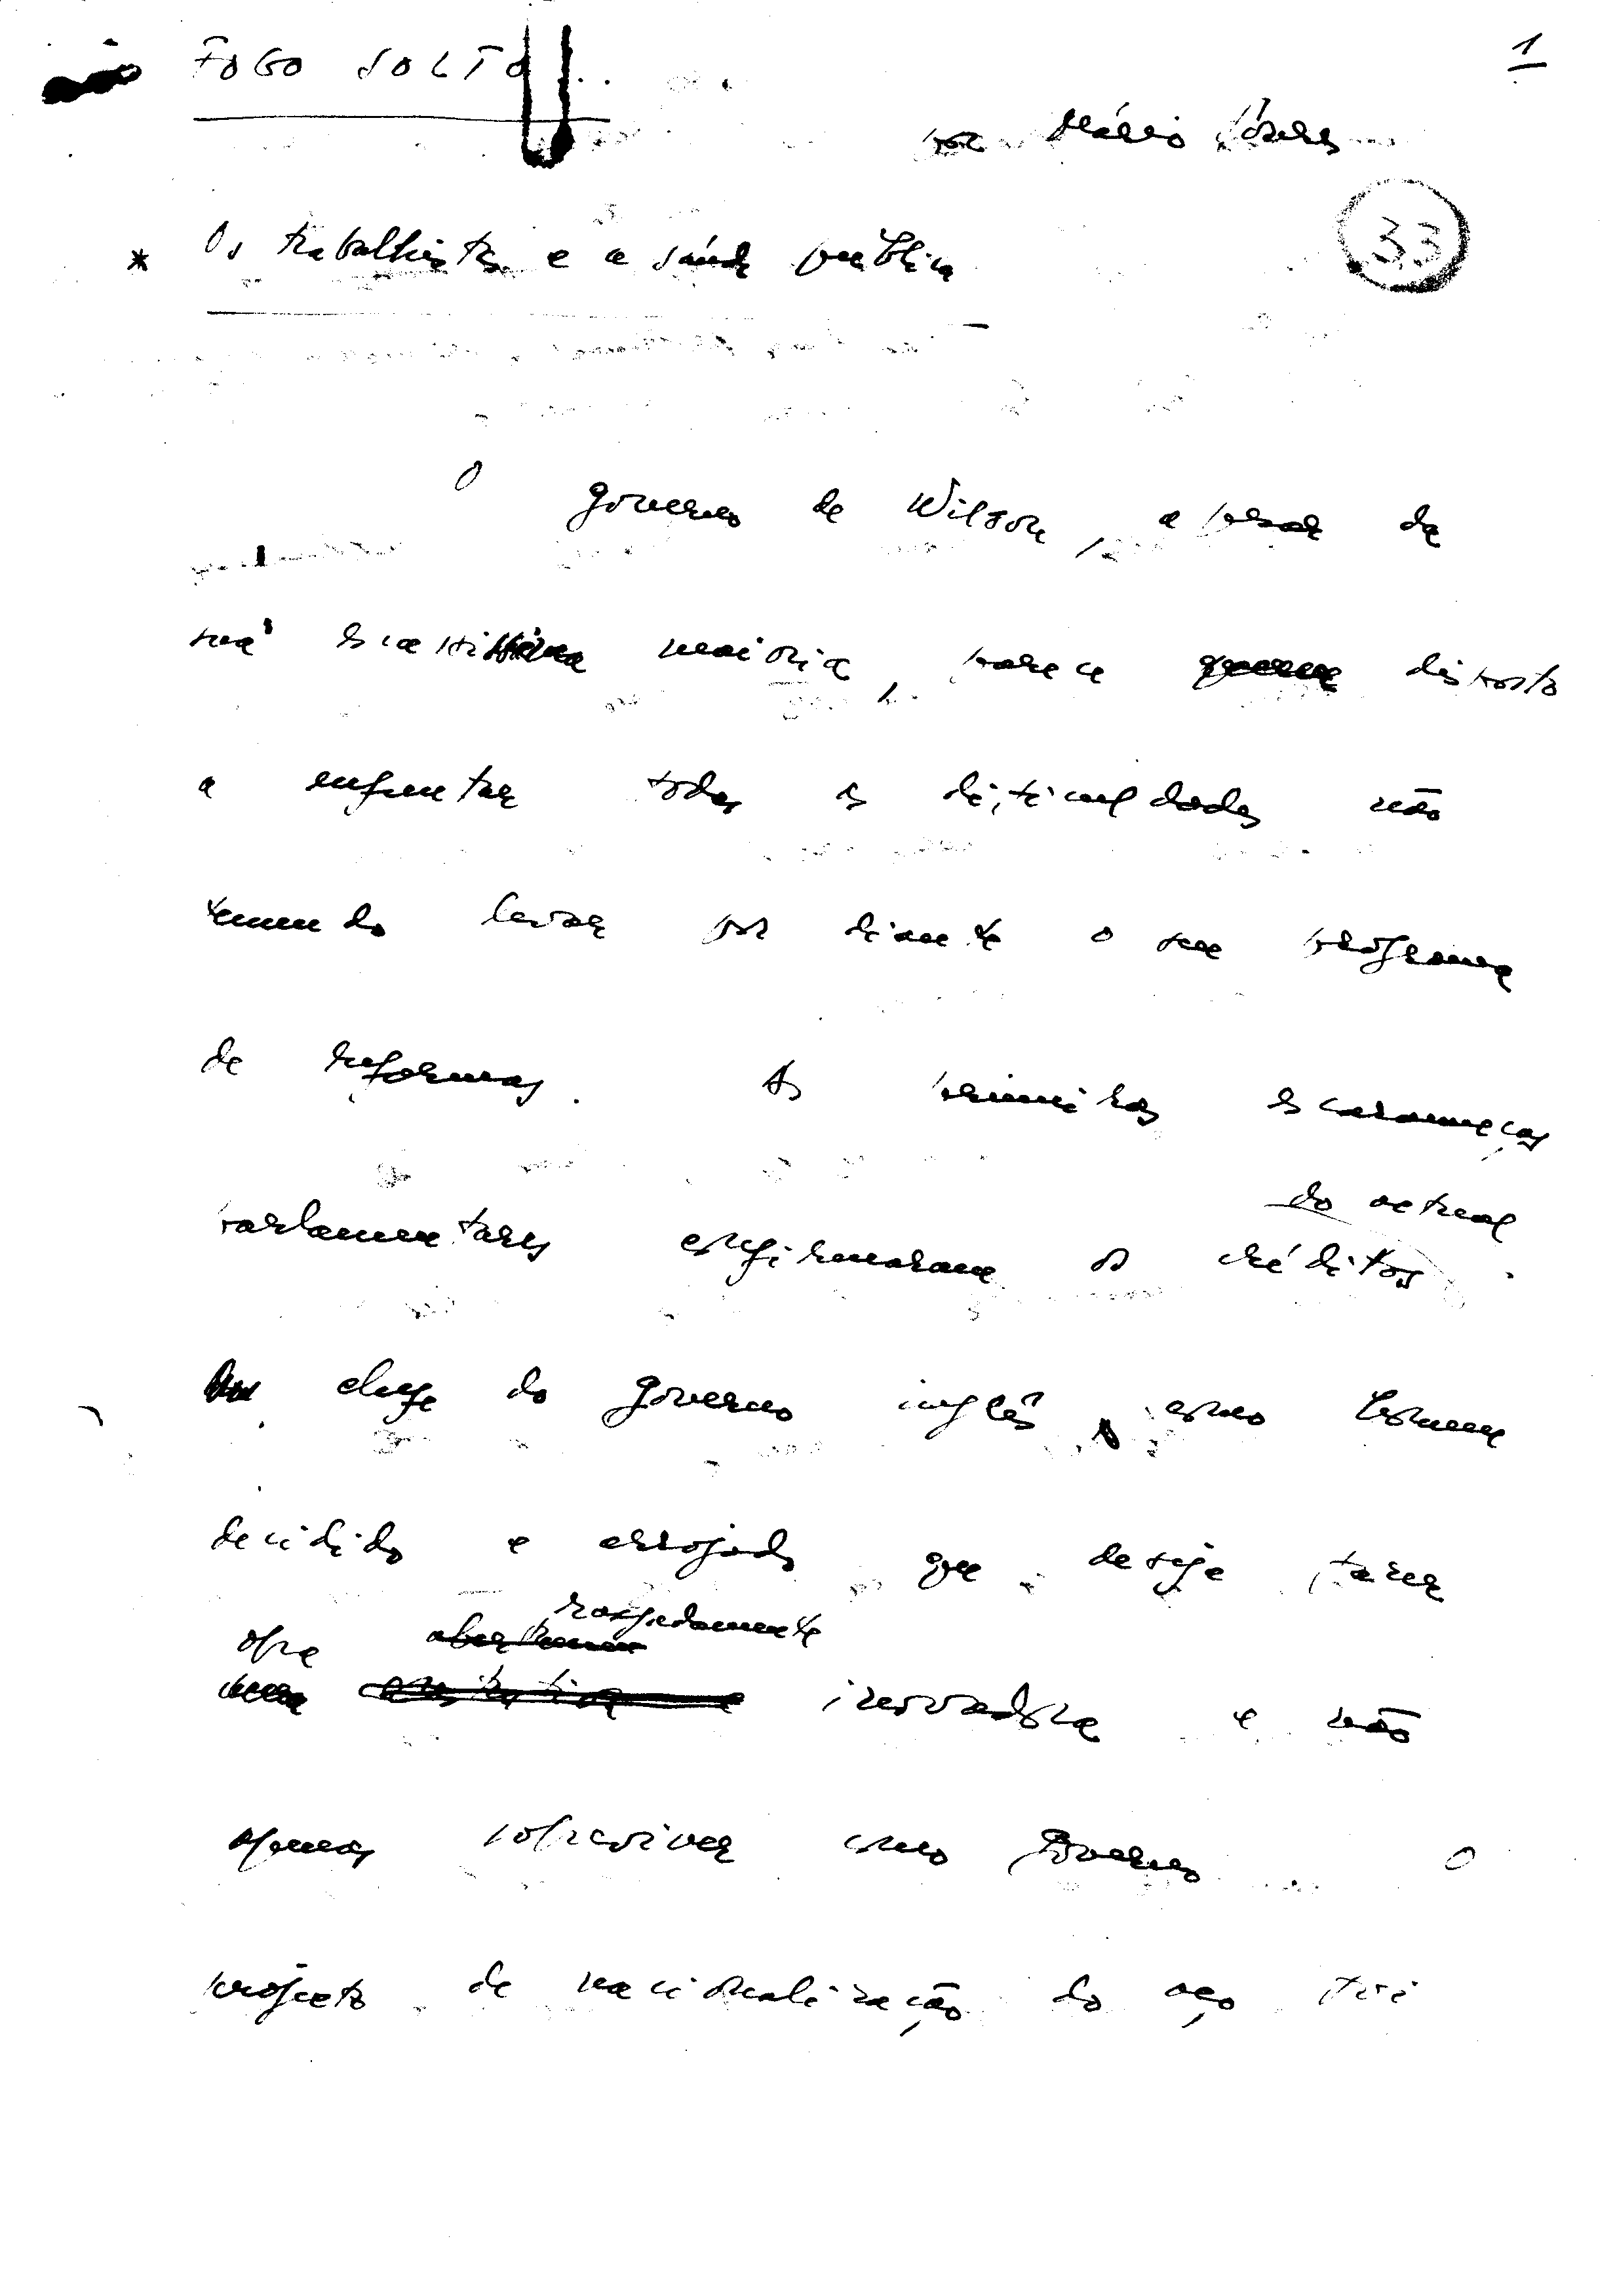 1
FOGO SOLTO...
por Mário Soares
33
* Os trabalhistas e a saúde pública
O governo de Wilson, apesar da
sua escassíssima maioria, parece disposto
a enfrentar todas as dificuldades não
temendo levar por diante o seu programa
de reformas. As primeiras escaramuças
parlamentares confirmaram os créditos
do actual
chefe do governo inglês, como homem
decidido e arrojado que deseja fazer
obra rasgadamente
inovadora e não
apenas sobreviver como Governo. O
projecto de nacionalização do aço foi